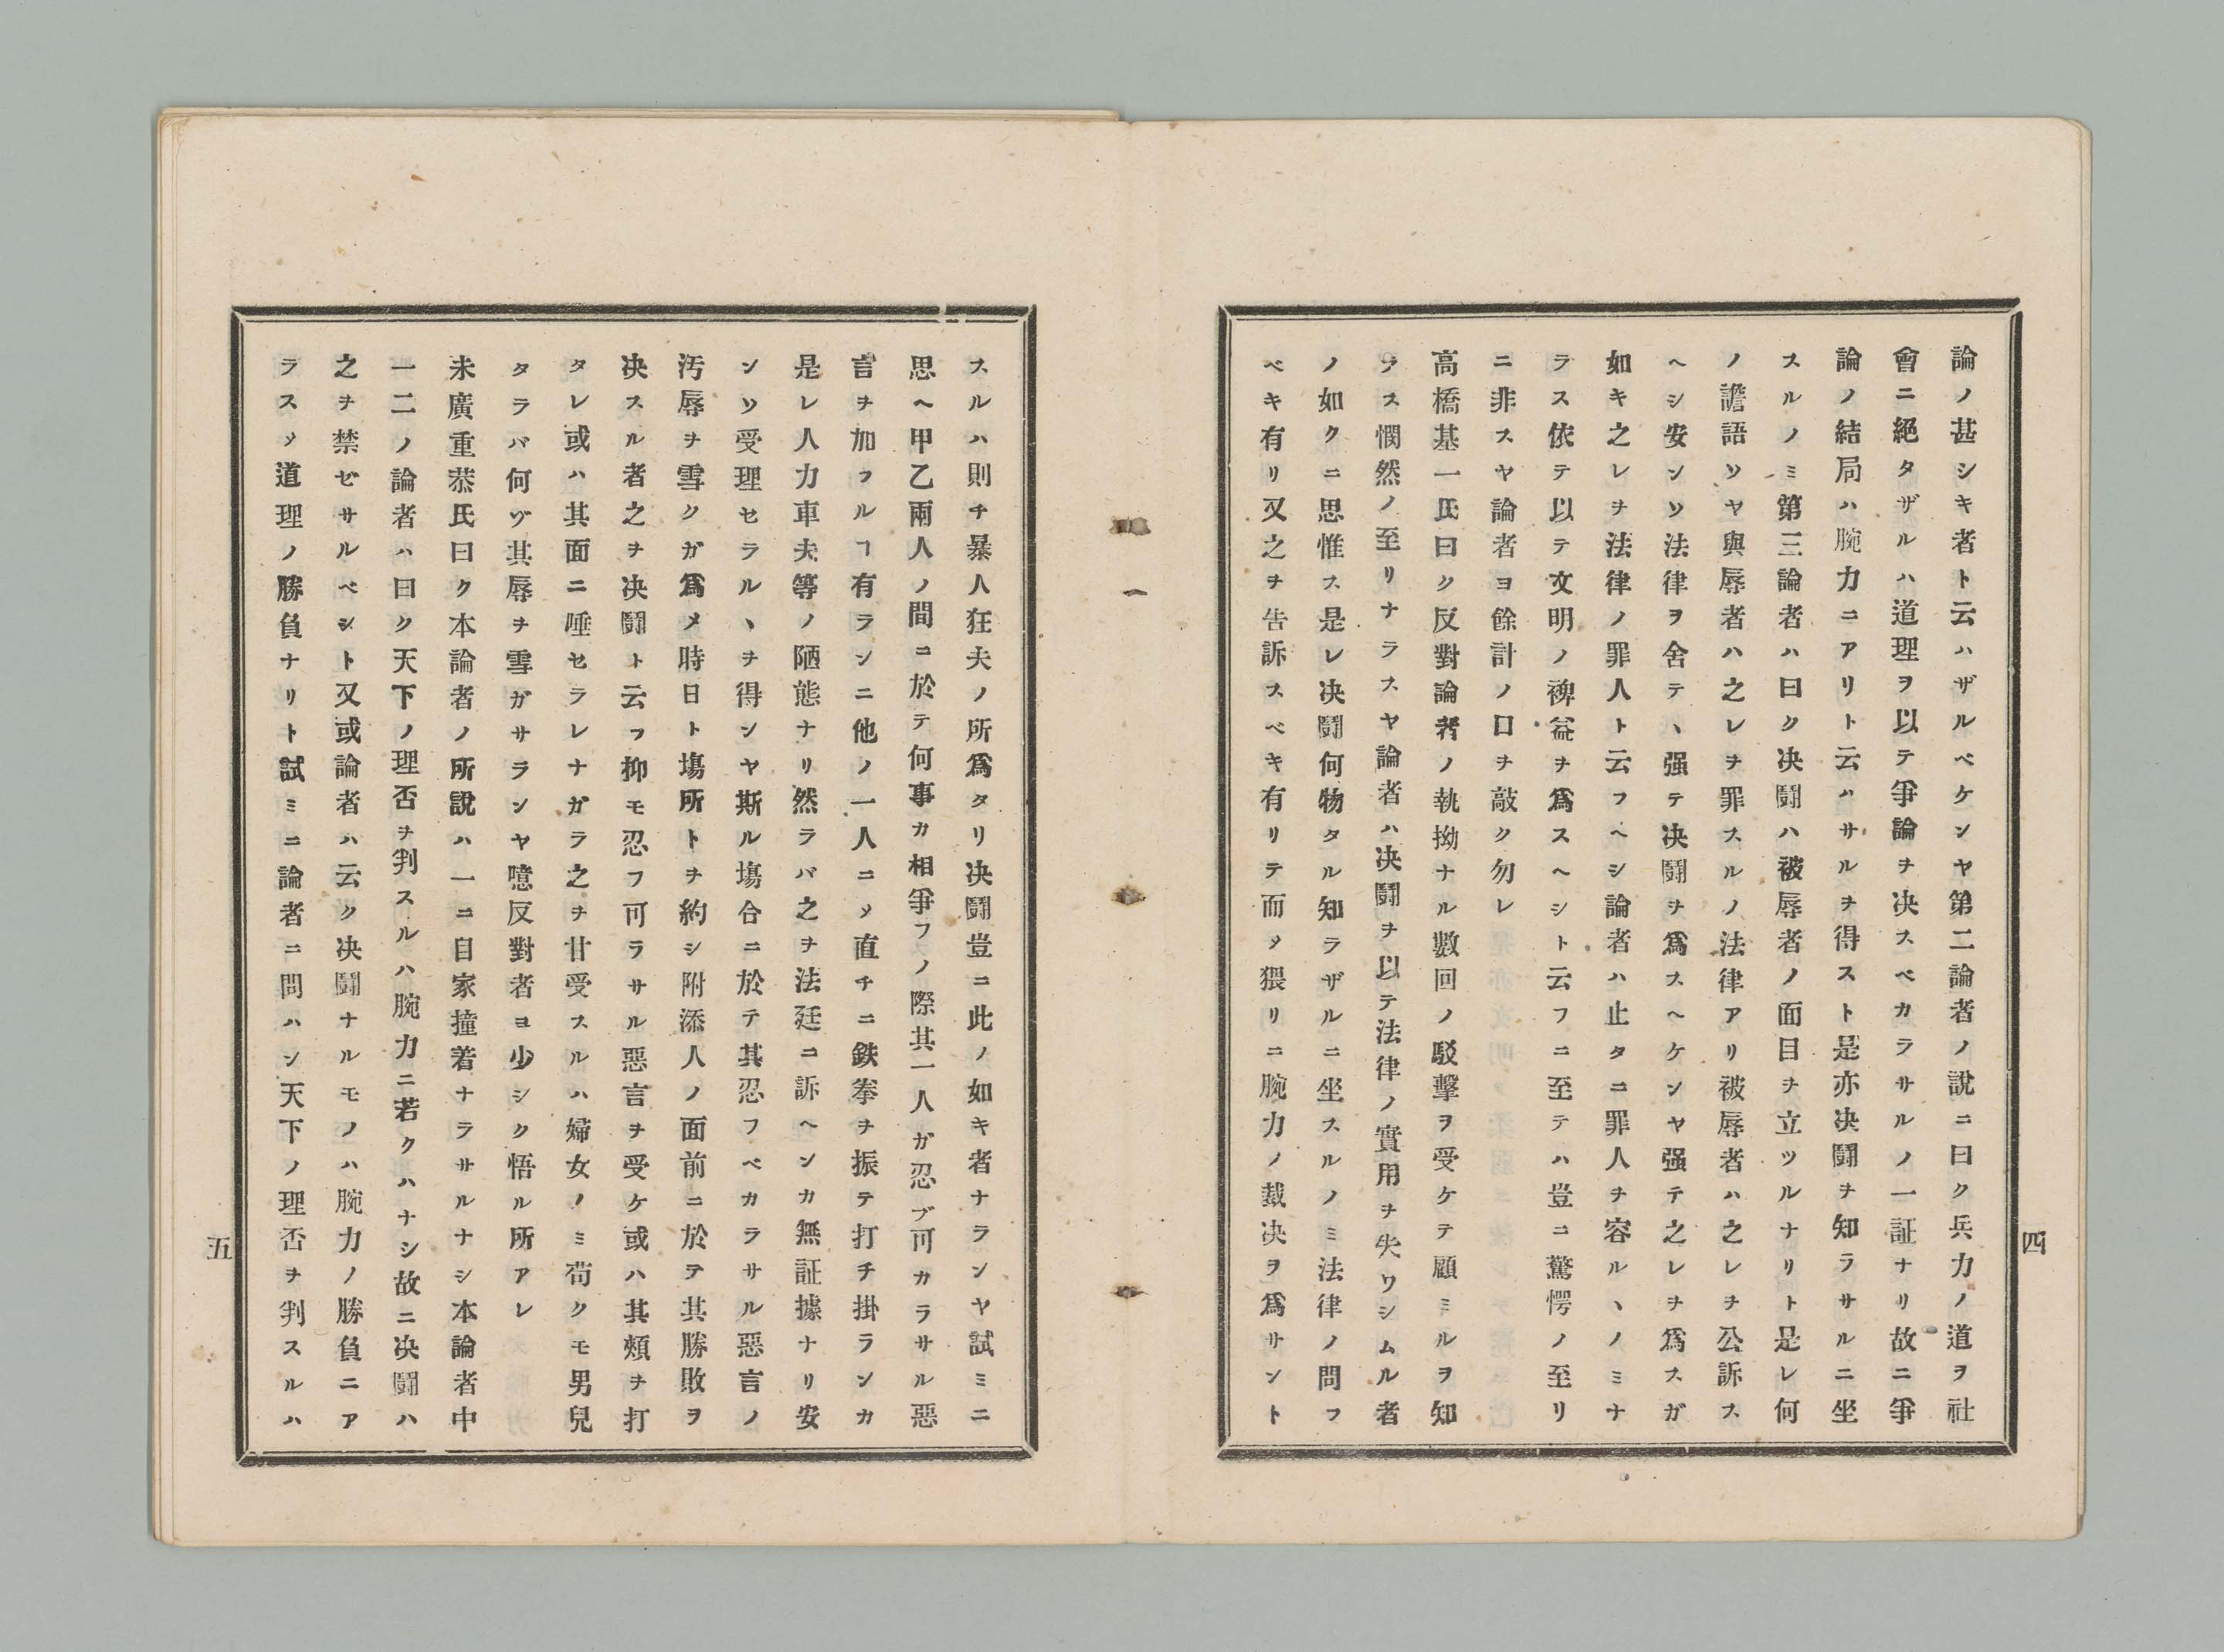 論ノ甚シキ者ト云ハザルベケンヤ第二論者ノ說ニ曰ク兵力ノ道ヲ社
會ニ絕タザルハ道理ヲ以テ爭論ヲ决スベカラサルノ一証ナリ故ニ爭
論ノ結局ハ腕力ニアリト云ハサルヲ得スト是亦决鬪ヲ知ラサルニ坐
スルノミ第三論者ハ曰ク决鬪ハ被辱者ノ面目ヲ立ツルナリト是レ何
ノ譫語ソヤ與辱者ハ之レヲ罪スルノ法律アリ被辱者ハ之レヲ公訴ス
ヘシ安ンソ法律ヲ舍テヽ强テ决鬪ヲ爲スヘケンヤ强テ之レヲ爲スガ
如キ之レヲ法律ノ罪人ト云フヘシ論者ハ止タニ罪人ヲ容ルヽノミナ
ラス依テ以テ文明ノ裨益ヲ爲スヘシト云フニ至テハ豈ニ驚愕ノ至リ
ニ非スヤ論者ヨ餘計ノ口ヲ敲ク勿レ
高橋基一氏曰ク反對論者ノ執拗ナル數回ノ駁擊ヲ受ケテ顧ミルヲ知
ラス憫然ノ至リナラスヤ論者ハ决鬪ヲ以テ法律ノ實用ヲ失ワシムル者
ノ如クニ思惟ス是レ决鬪何物タル知ラザルニ坐スルノミ法律ノ問フ
ベキ有リ又之ヲ告訴スベキ有リテ而メ猥リニ腕力ノ裁决ヲ爲サント
四
スルハ則チ暴人狂夫ノ所爲タリ决鬪豈ニ此ノ如キ者ナランヤ試ミニ
思ヘ甲乙兩人ノ間ニ於テ何事カ相爭フノ際其一人ガ忍ブ可カラサル惡
言ヲ加フルヿ有ランニ他ノ一人ニメ直チニ鉄拳ヲ振テ打チ掛ランカ
是レ人力車夫等ノ陋態ナリ然ラバ之ヲ法廷ニ訴ヘンカ無証據ナリ安
ンソ受理セラルヽヲ得ンヤ斯ル塲合ニ於テ其忍フベカラサル惡言ノ
汚辱ヲ雪クガ爲メ時日ト塲所トヲ約シ附添人ノ面前ニ於テ其勝敗ヲ
决スル者之ヲ决鬪ト云フ抑モ忍フ可ラサル惡言ヲ受ケ或ハ其頰ヲ打
タレ或ハ其面ニ唾セラレナガラ之ヲ甘受スルハ婦女ノミ苟クモ男兒
タラバ何ヅ其辱ヲ雪ガサランヤ噫反對者ヨ少シク悟ル所アレ
未廣重恭氏曰ク本論者ノ所說ハ一ニ自家撞着ナラサルナシ本論者中
一二ノ論者ハ曰ク天下ノ理否ヲ判スルハ腕力ニ若クハナシ故ニ决鬪ハ
之ヲ禁ゼサルベシト又或論者ハ云ク决鬪ナルモノハ腕力ノ勝負ニア
ラスメ道理ノ勝負ナリト試ミニ論者ニ問ハン天下ノ理否ヲ判スルハ
五